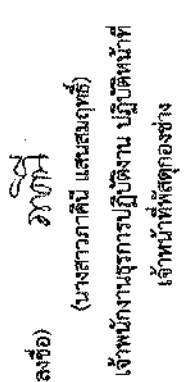 ลงชื่อ) ภาคินี
(นางสาวภาคินี แสนสมฤทธิ์)
เจ้าพนักงานธุรการปฏิบัติงาน ปฏิบัติหน้าที่
เจ้าหน้าที่พัสดุกองช่าง